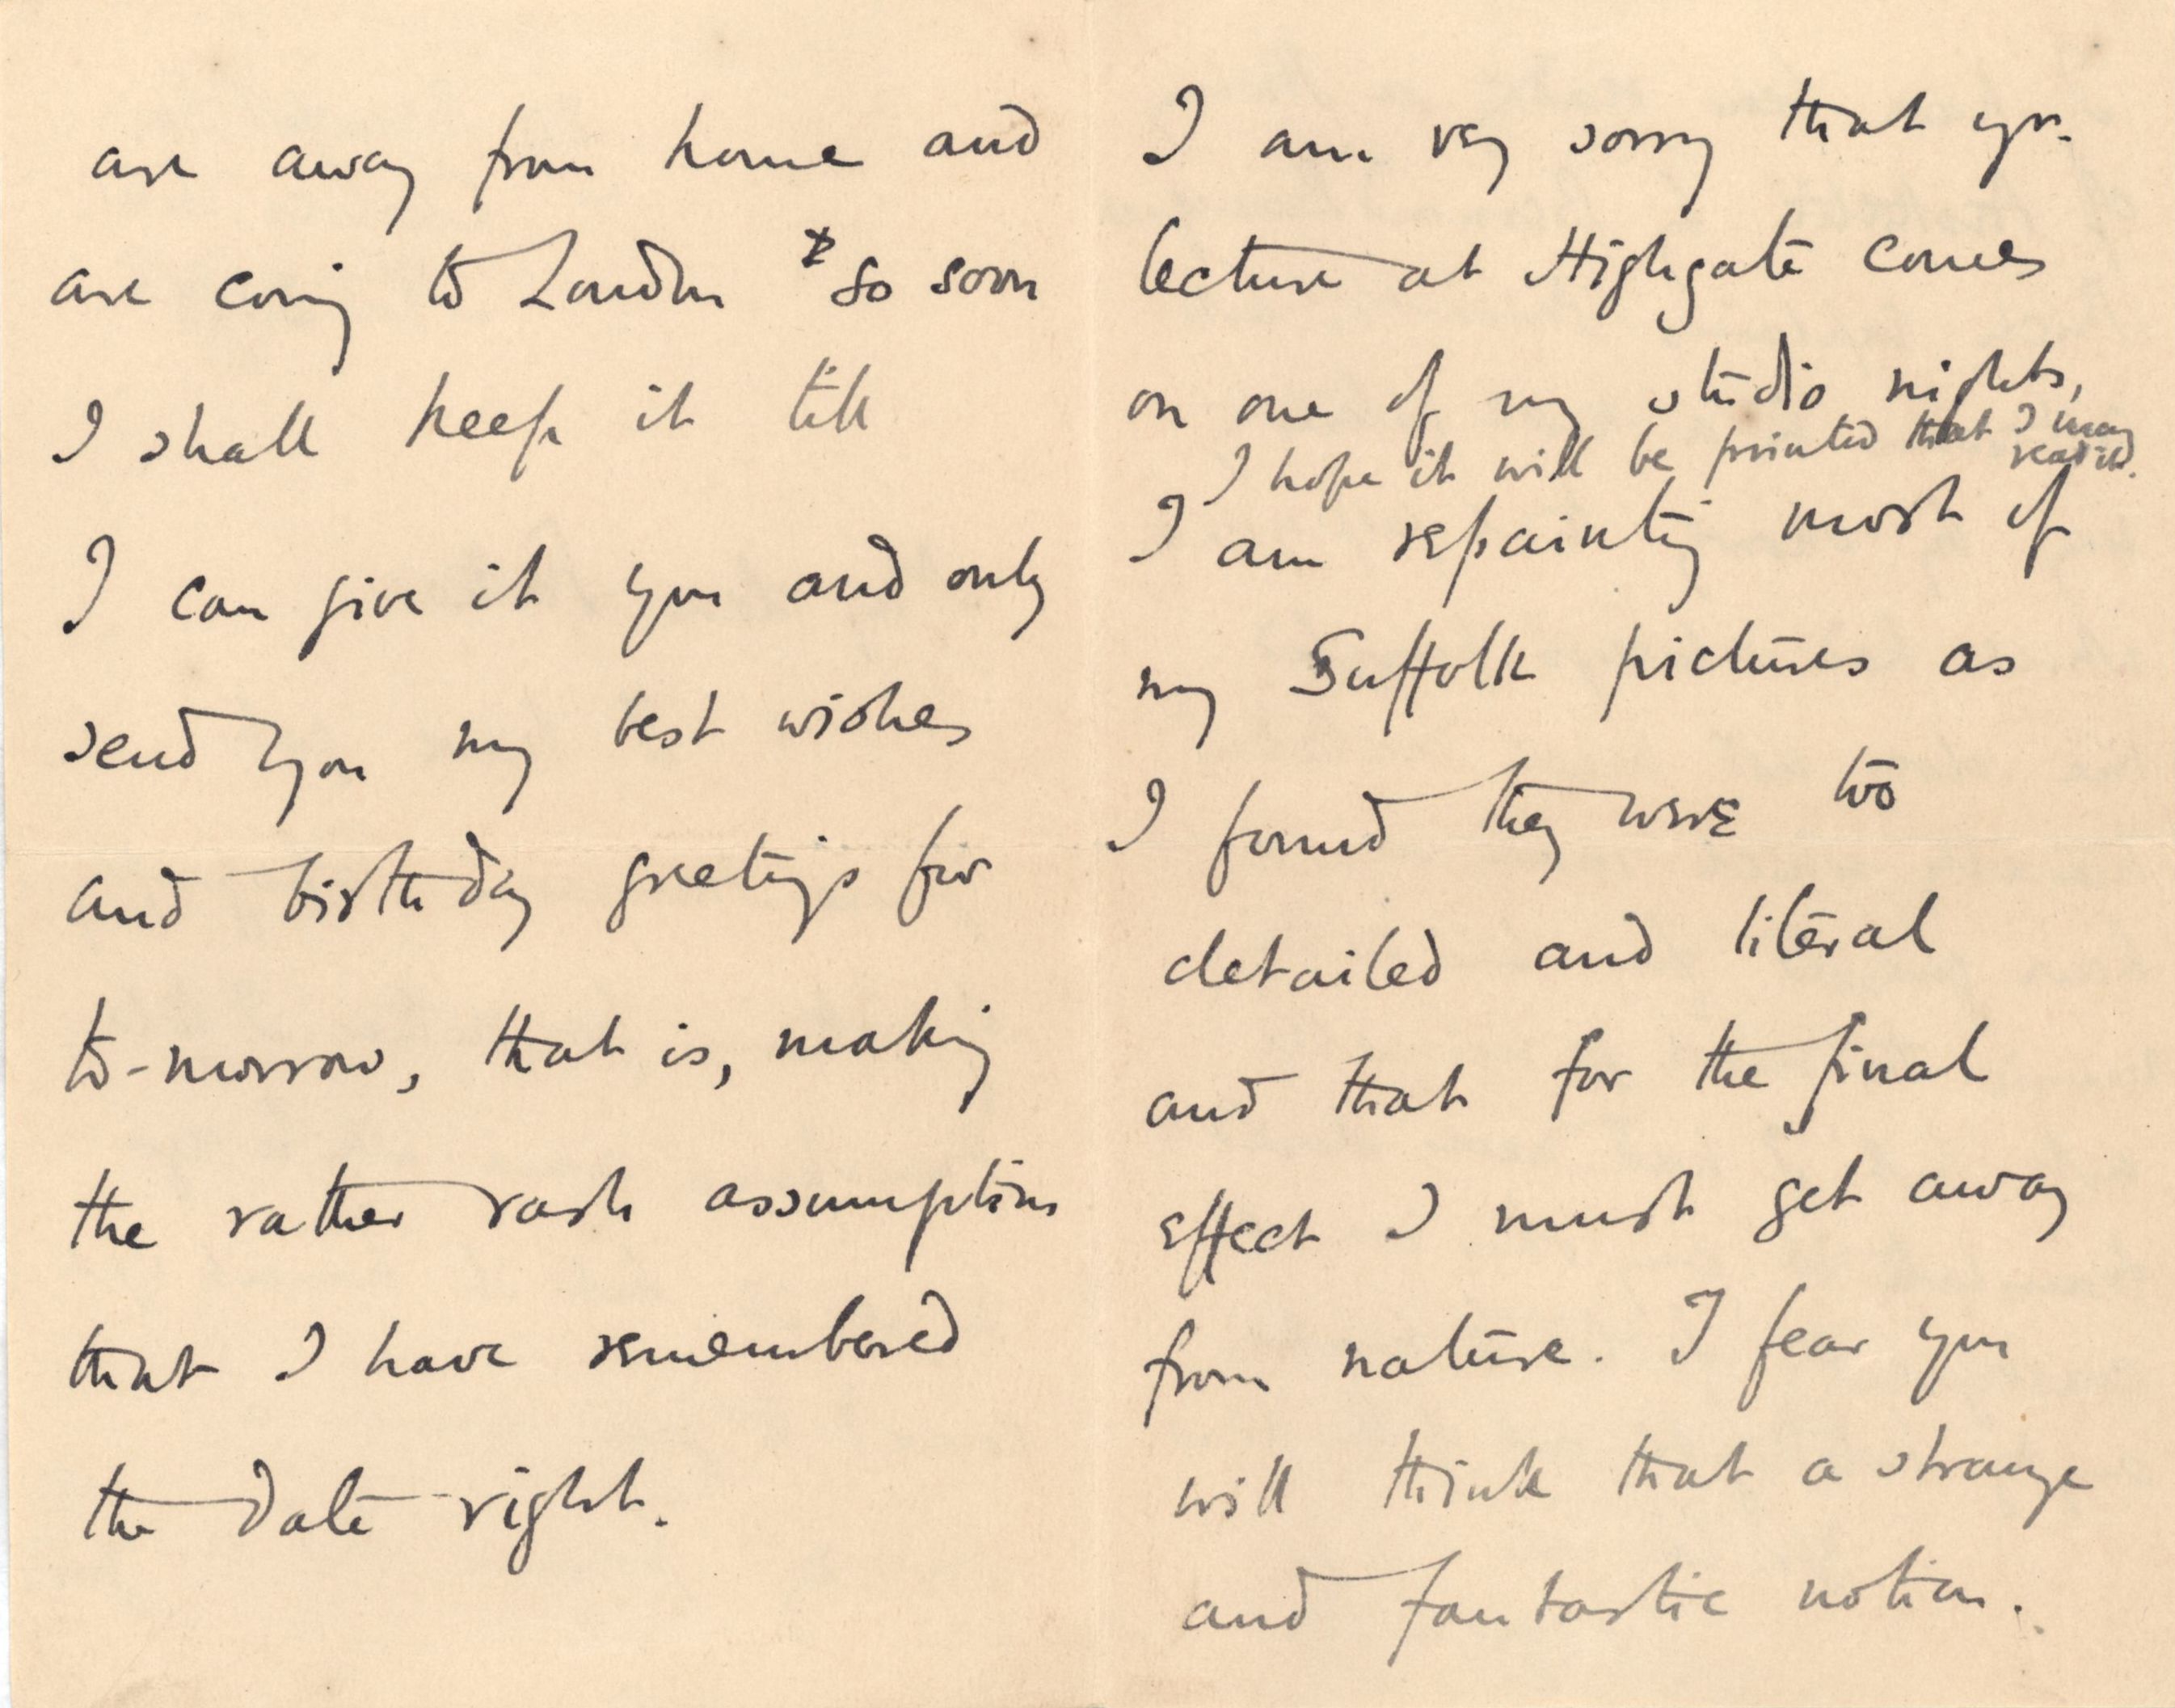 are away from home and
are coming to London so soon
I shall keep it till
I can give it you and only
send you my best wishes
and birthday greetings for
to-morrow, that is, making
the rather rash assumption
that I have remembered
the date right.
I am very sorry that yr.
lecture at Highgate comes
on one of my studio nights,
I hope it will be printed that I may
read it.
I am repainting most of
my Suffolk pictures as
I found they were too
detailed and literal
and that for the final
effect I must get away
from nature. I fear you
will think that a strange
and fantastic notion.